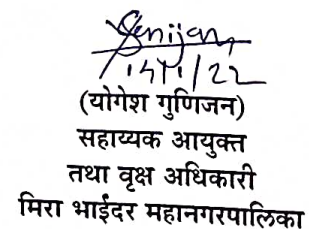 Gunijan
14/1/22
(योगेश गुणिजन)
सहाय्यक आयुक्त
तथा वृक्ष अधिकारी
मिरा भाईंदर महानगरपालिका